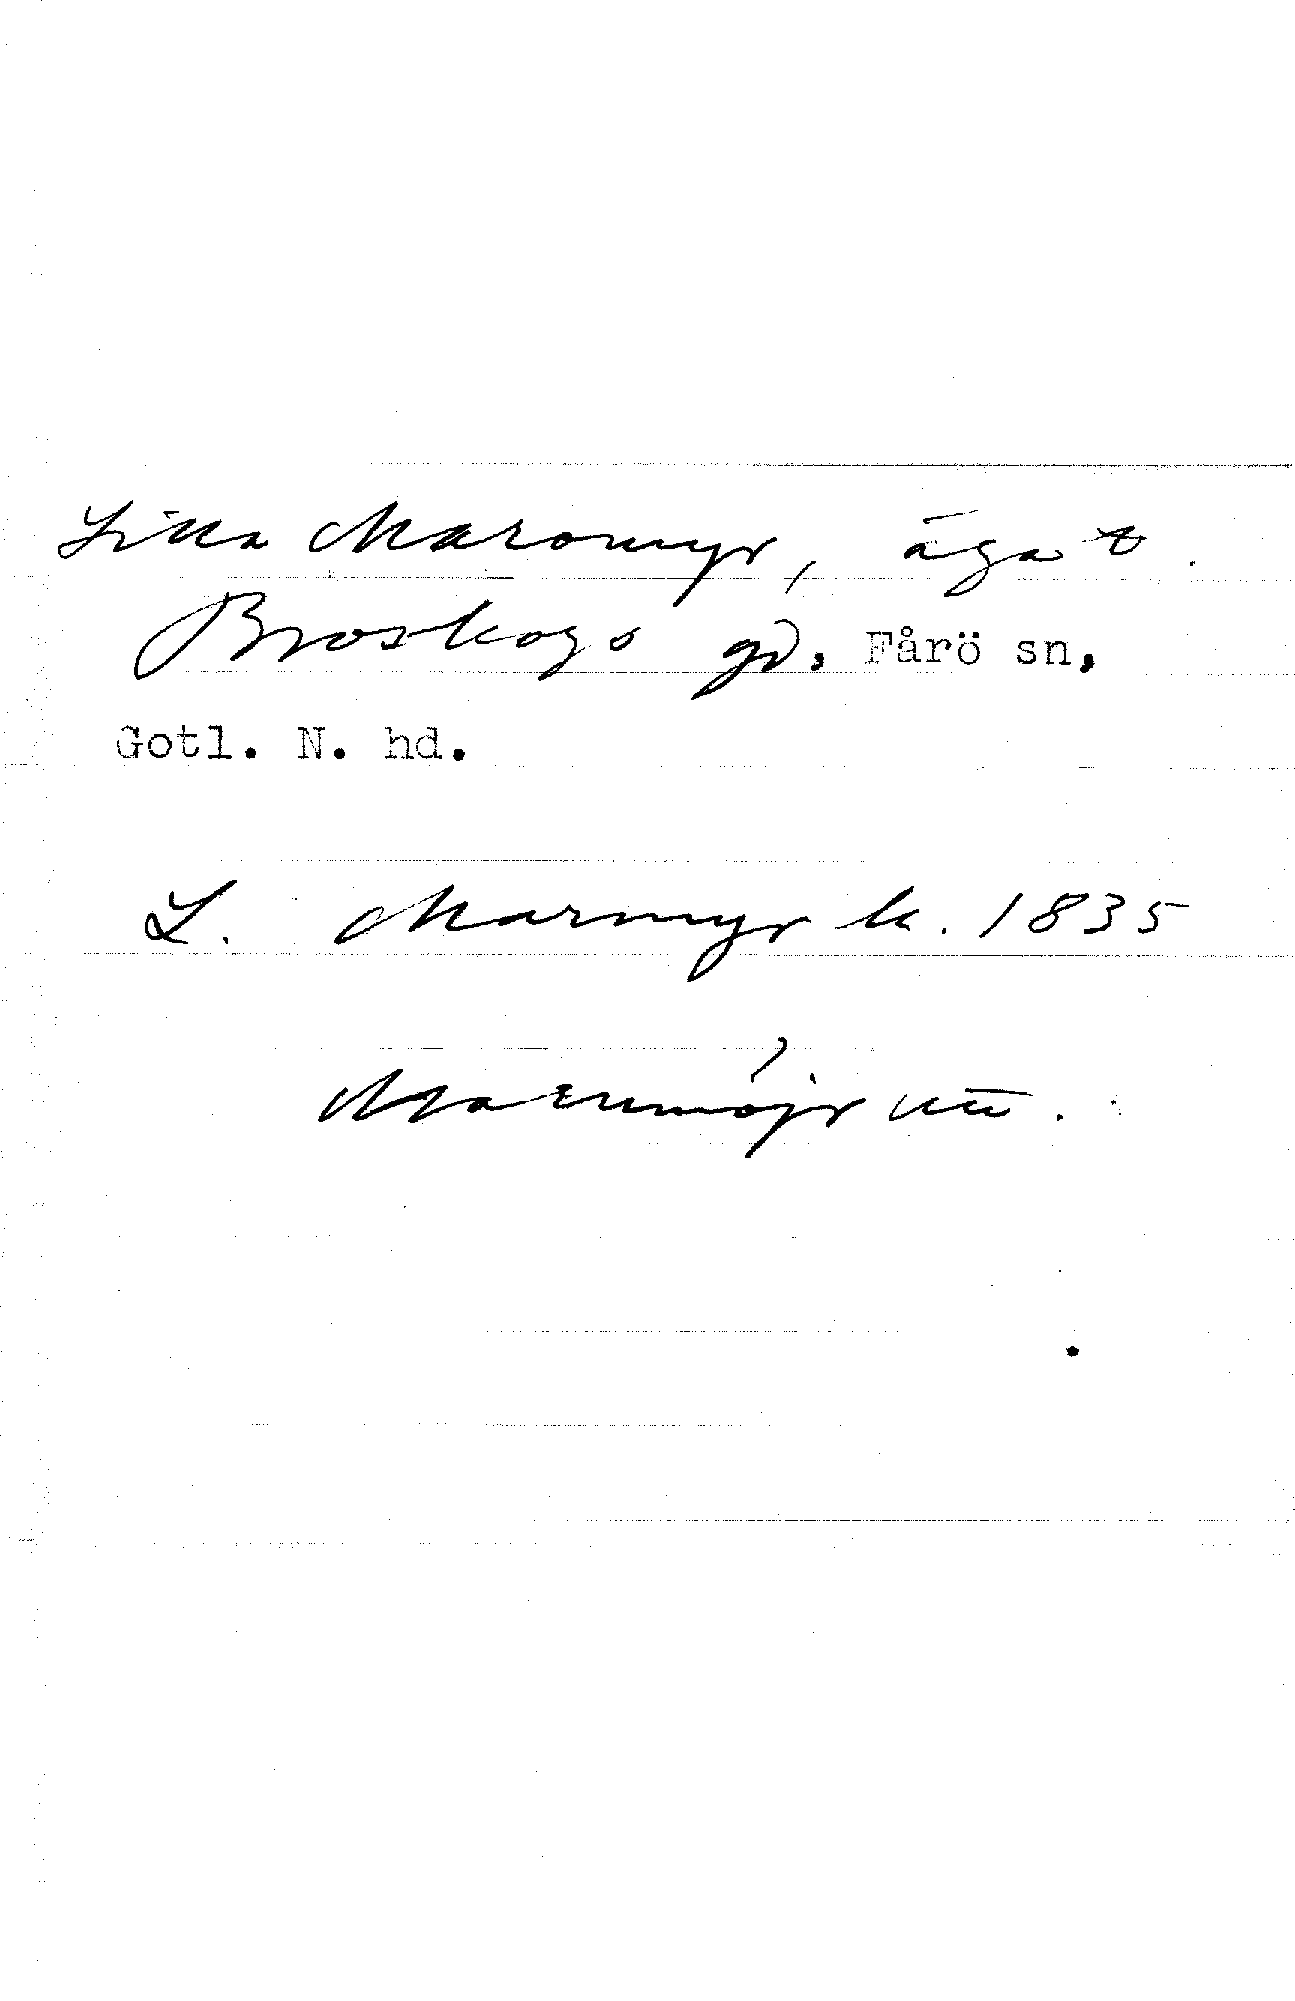 Lilla Maromyr, äga t.
Broskogs gd, Fårö sn,
Gotl. N. hd.
L. Marmyr k. 1835
Marmöjr